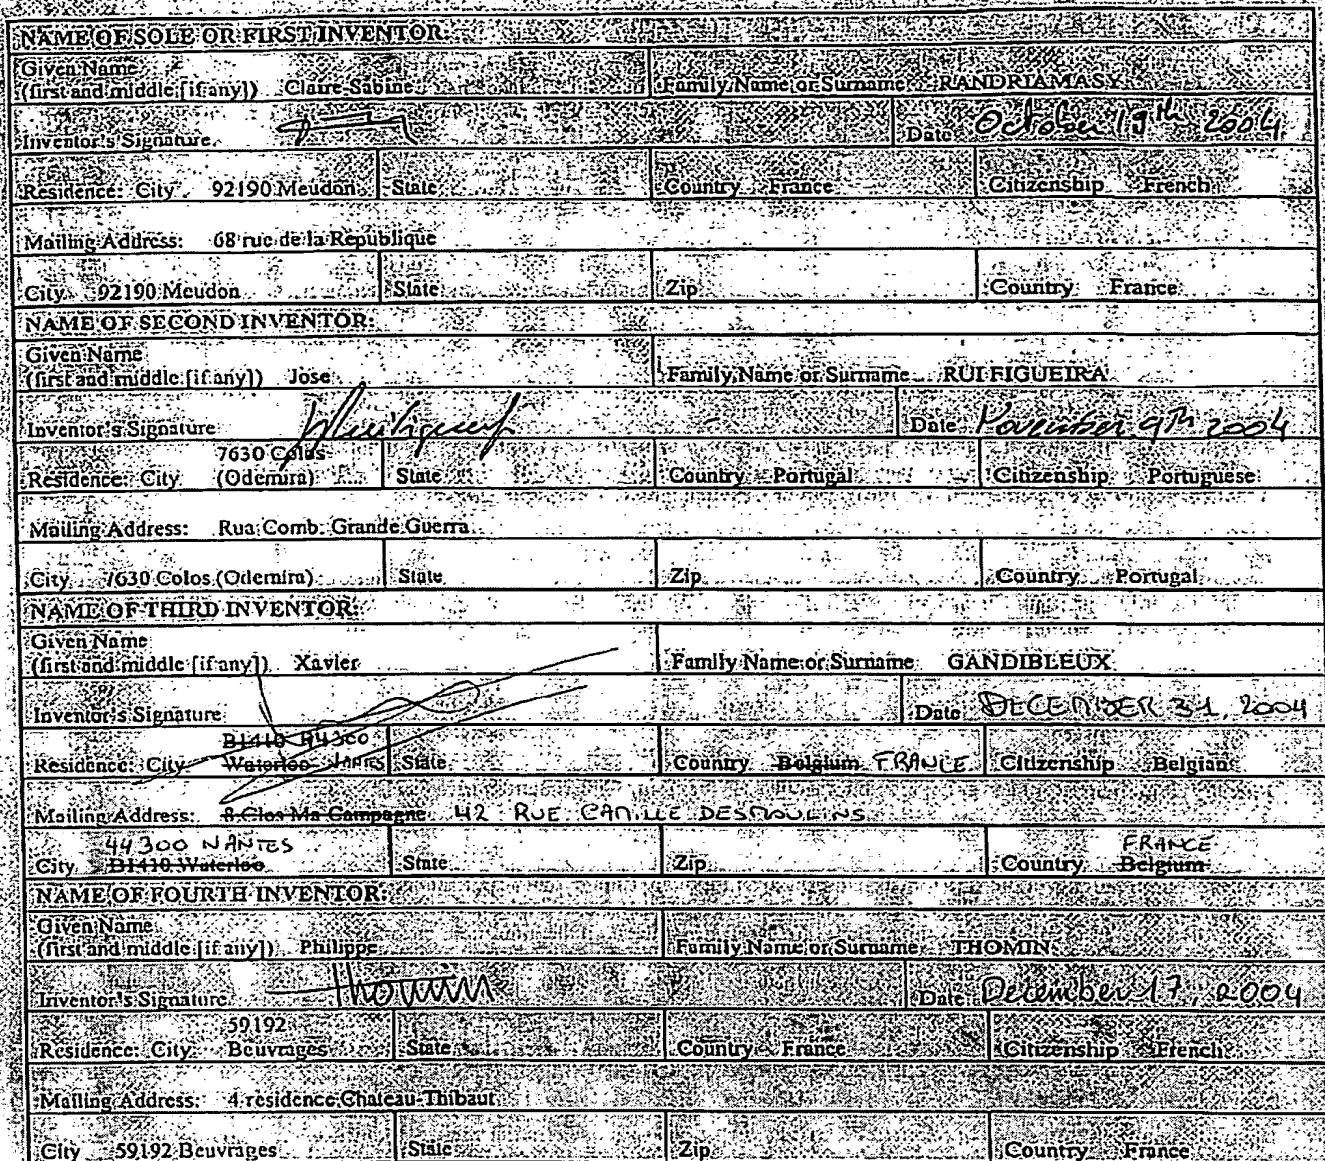 NAME OF SOLE OR FIRST INVENTOR:
Given Name
(first and middle [if any]) Claire-Sabine Family Name or Surname RANDRIAMASY
Inventor's Signature Date October 19th 2004
Residence: City 92190 Meudon State Country France Citizenship French
Mailing Address: 68 rue de la République
City 92190 Meudon State Zip Country France
NAME OF SECOND INVENTOR:
Given Name
(first and middle [if any]) Jose Family Name or Surname RUI FIGUEIRA
Inventor's Signature Date November 9th 2004
7630 Colos
Residence: City (Odemira) State Country Portugal Citizenship Portuguese
Mailing Address: Rua Comb. Grande Guerra
City 7630 Colos (Odemira) State Zip Country Portugal
NAME OF THIRD INVENTOR:
Given Name
(first and middle [if any]) Xavier Family Name or Surname GANDIBLEUX
Inventor's Signature Date DECEMBER 31, 2004
B1410 44300
Residence: City Waterloo NANTES State Country Belgium FRANCE Citizenship Belgian
Mailing Address: 8 Clos Ma Campagne 42 RUE CAMILLE DESMOULINS
44300 NANTES FRANCE
City B1410 Waterloo State Zip Country Belgium
NAME OF FOURTH INVENTOR:
Given Name
(first and middle [if any]) Philippe Family Name or Surname THOMIN
Inventor's Signature Thomin Date December 17, 2004
59192
Residence: City Beuvrages State Country France Citizenship French
Mailing Address: 4 residence Chateau Thibaut
City 59192 Beuvrages State Zip Country France